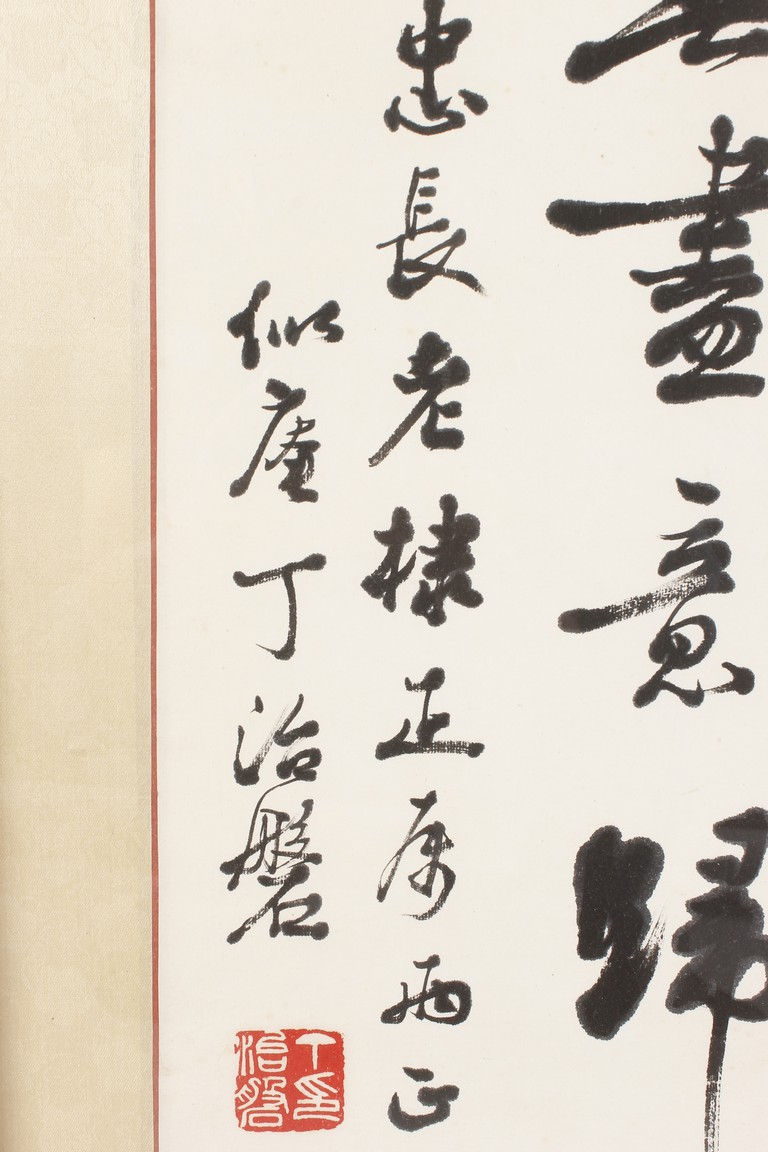 盡意歸
忠長老棣正属兩正
似庵丁治磐
丁印
治磐